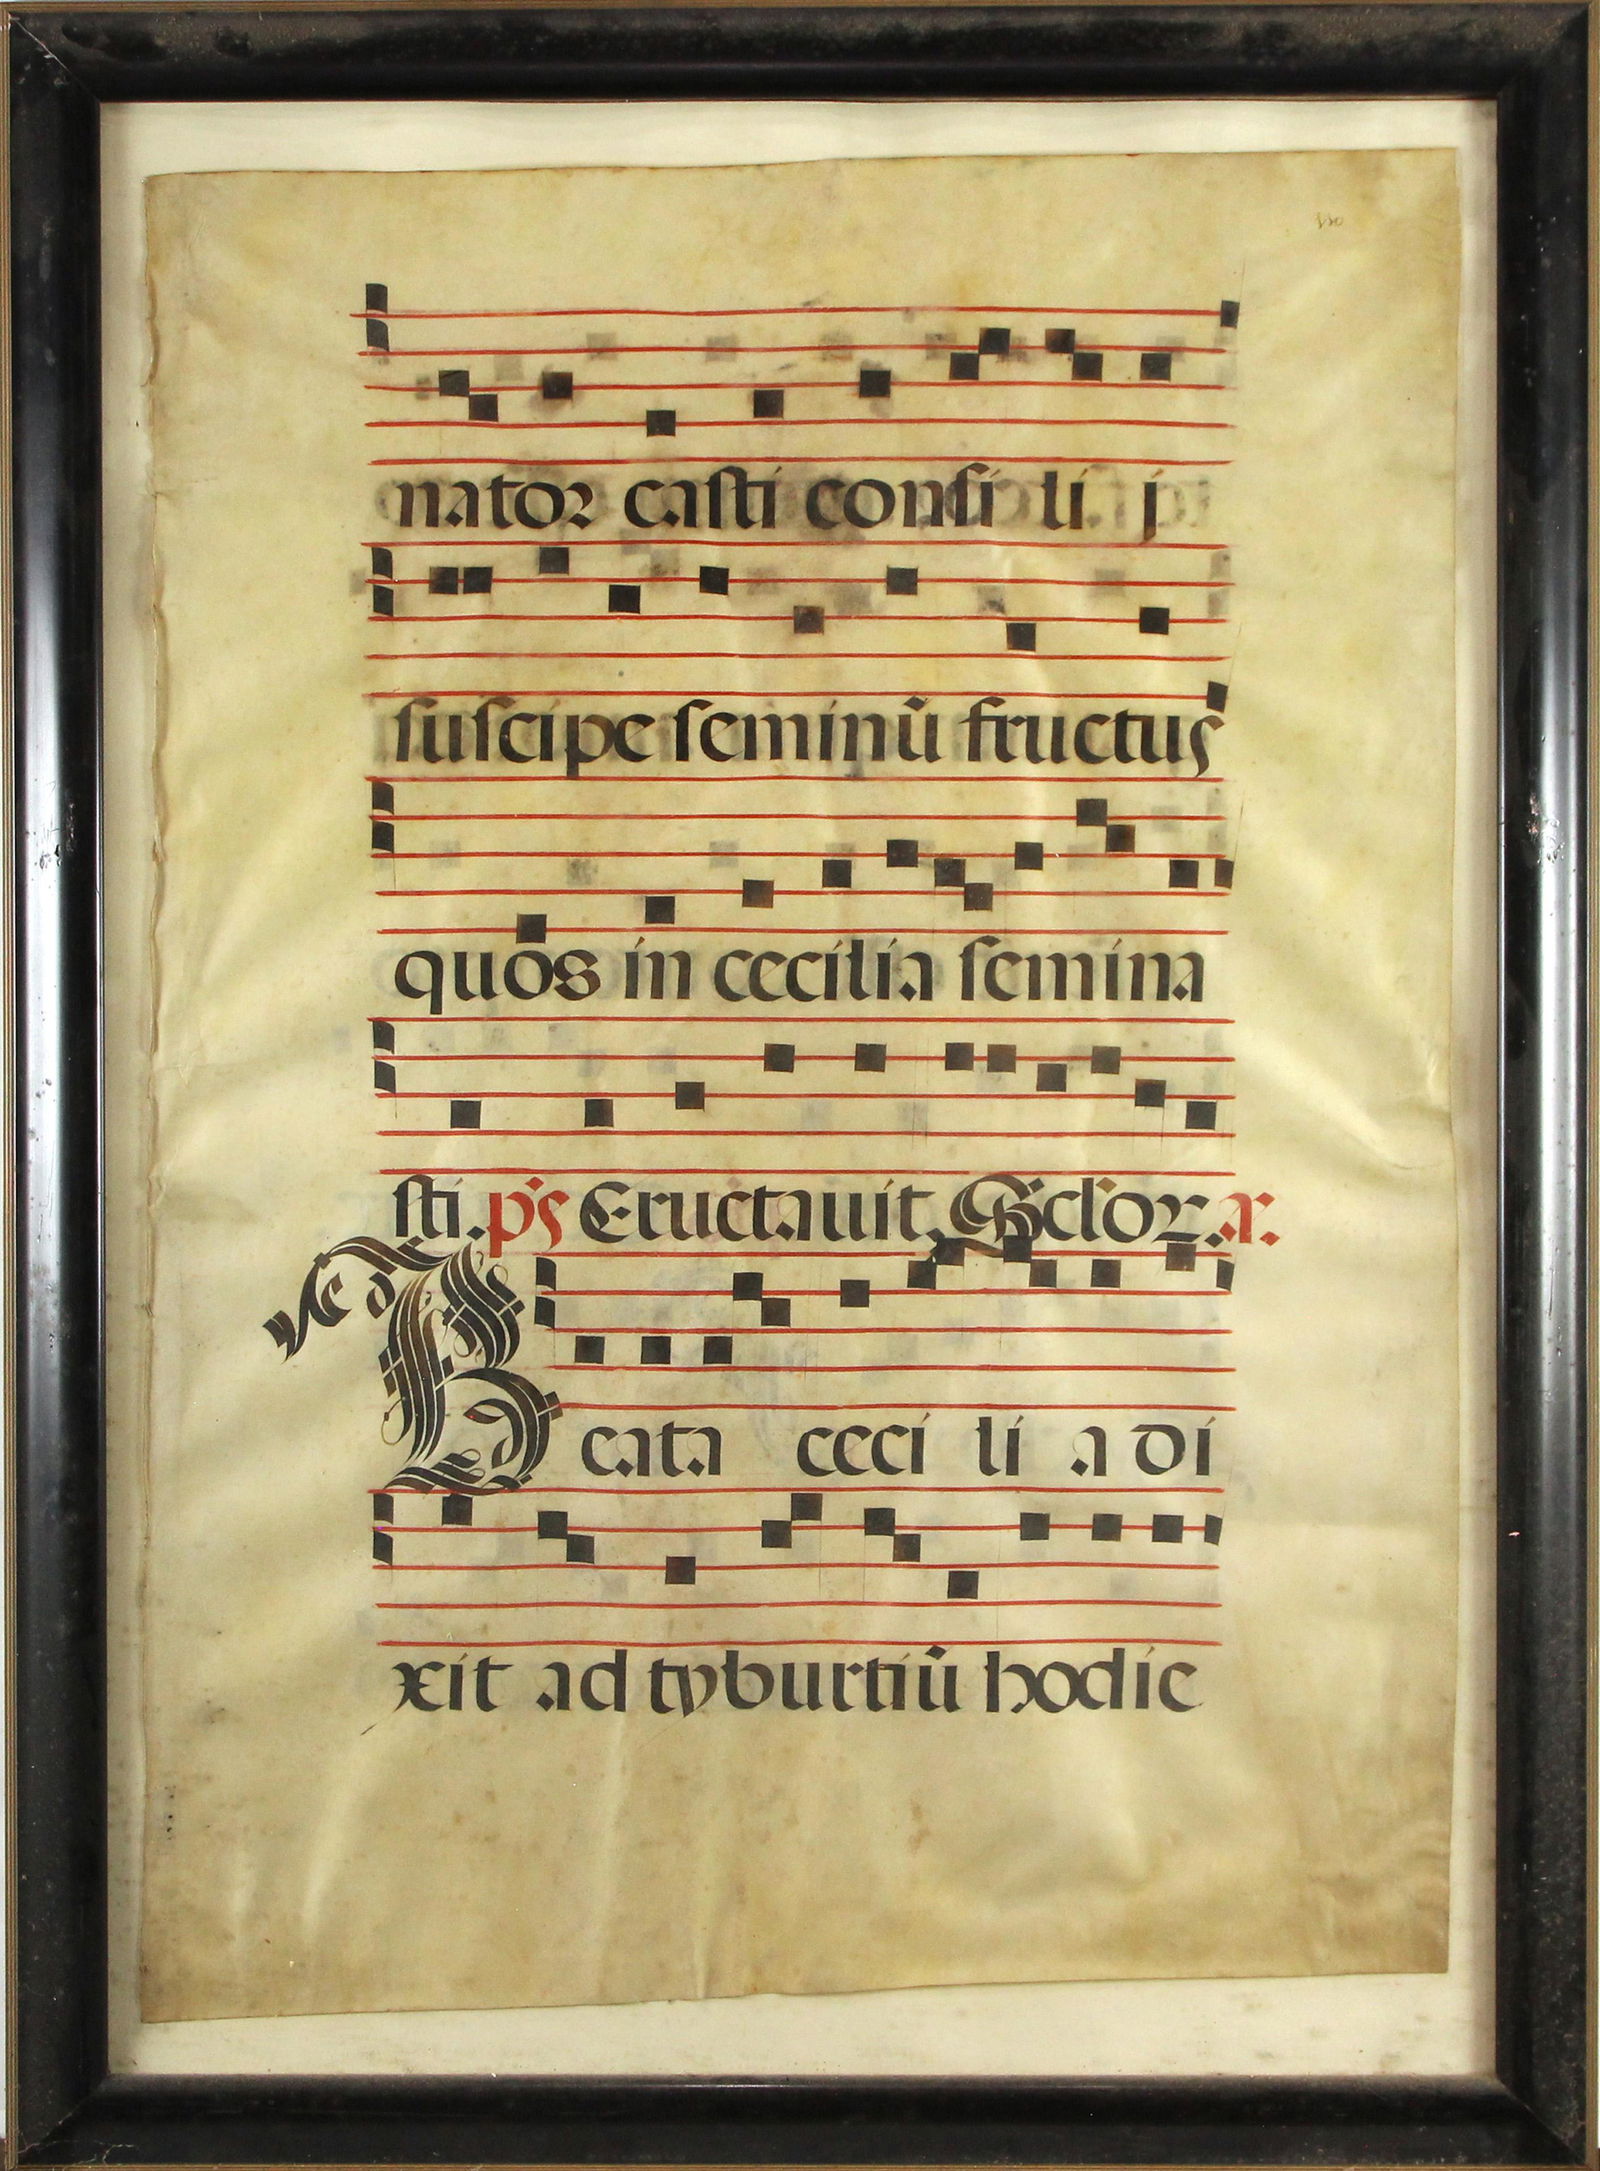 nator casti consi li j
suscipe seminū fructus
quos in cecilia semina
sti. ps Eructauit.
B cata ceci li a di
xit ad tyburtiū hodie